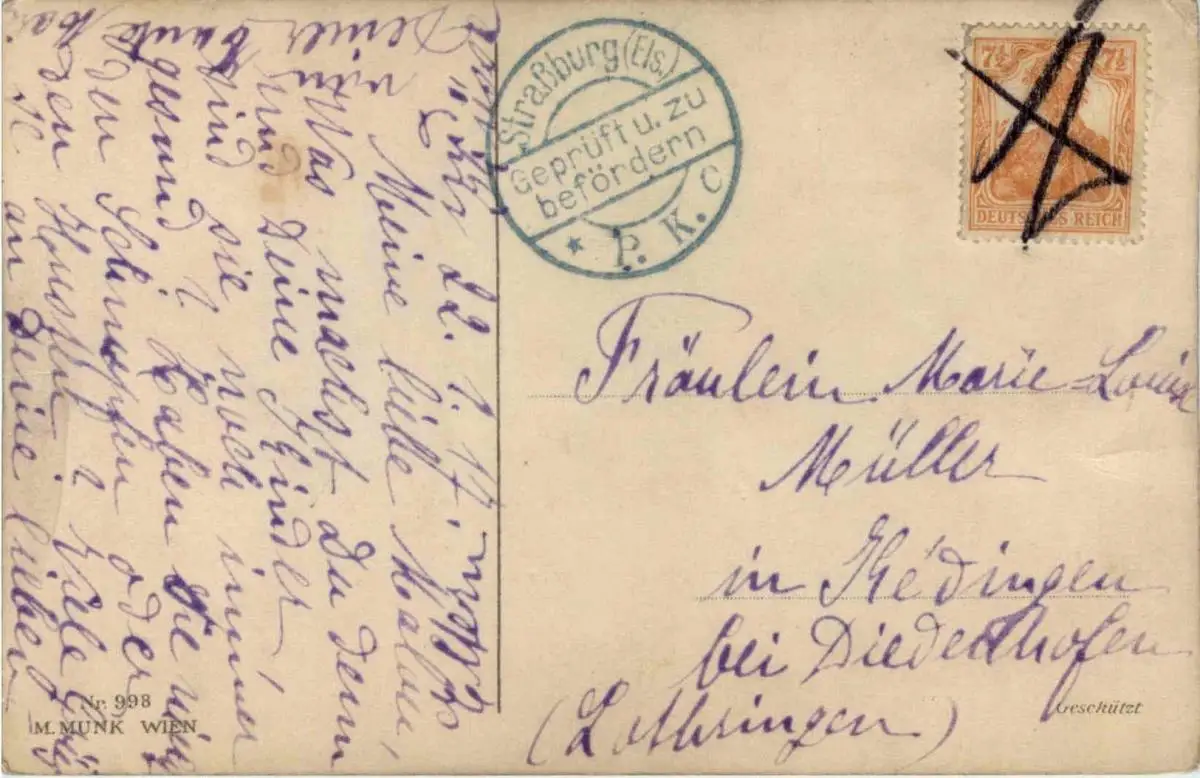 Straßburg (Els.)
Geprüft u. zu
befördern
* P. K. C
7½ 7½
DEUTSCHES REICH
22. 1. 17.
Meine liebe Malou,
Was machst Du denn
und Deine Kinder,
sind sie noch immer
gesund? Haben sie nie
den Schnupfen oder
den Husten? Viele Grüße
an Deine lieben
Deiner
Fräulein Marie-Louise
Müller
in Kédingen
bei Diedenhofen
(Lothringen)
Nr. 998
M. MUNK WIEN
Geschützt